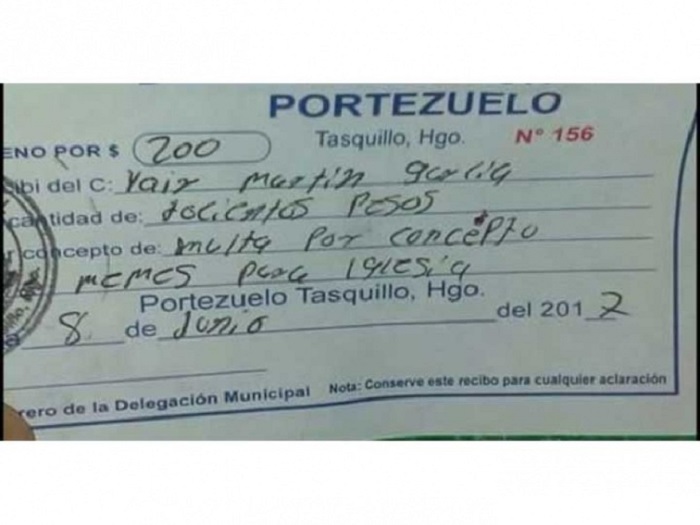 PORTEZUELO
ENO POR $ 200 Tasquillo, Hgo. N° 156
ibi del C: Yair Martin garcia
cantidad de: docientos Pesos
r concepto de: multa Por concepto
memes para Iglesia
Portezuelo Tasquillo, Hgo.
8 de Junio del 2017
rero de la Delegación Municipal Nota: Conserve este recibo para cualquier aclaración